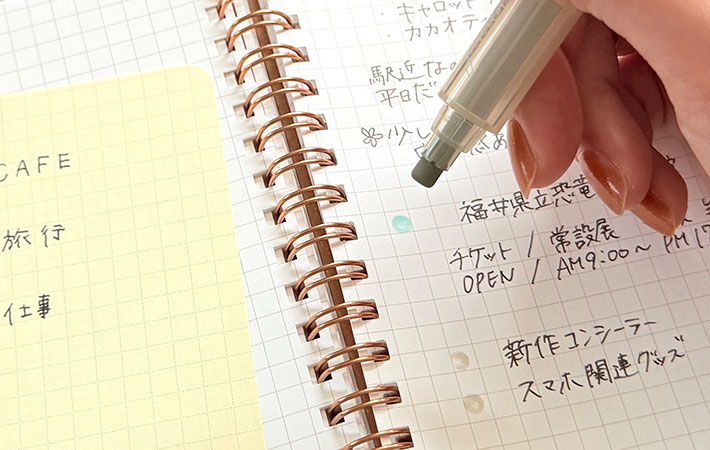 CAFE
旅行
仕事
・キャロット
・カカオティ
駅近なの
平日だ
少し
福井県立恐竜
チケット / 常設展
OPEN / AM9:00〜PM17
新作コンシーラー
スマホ関連グッズ